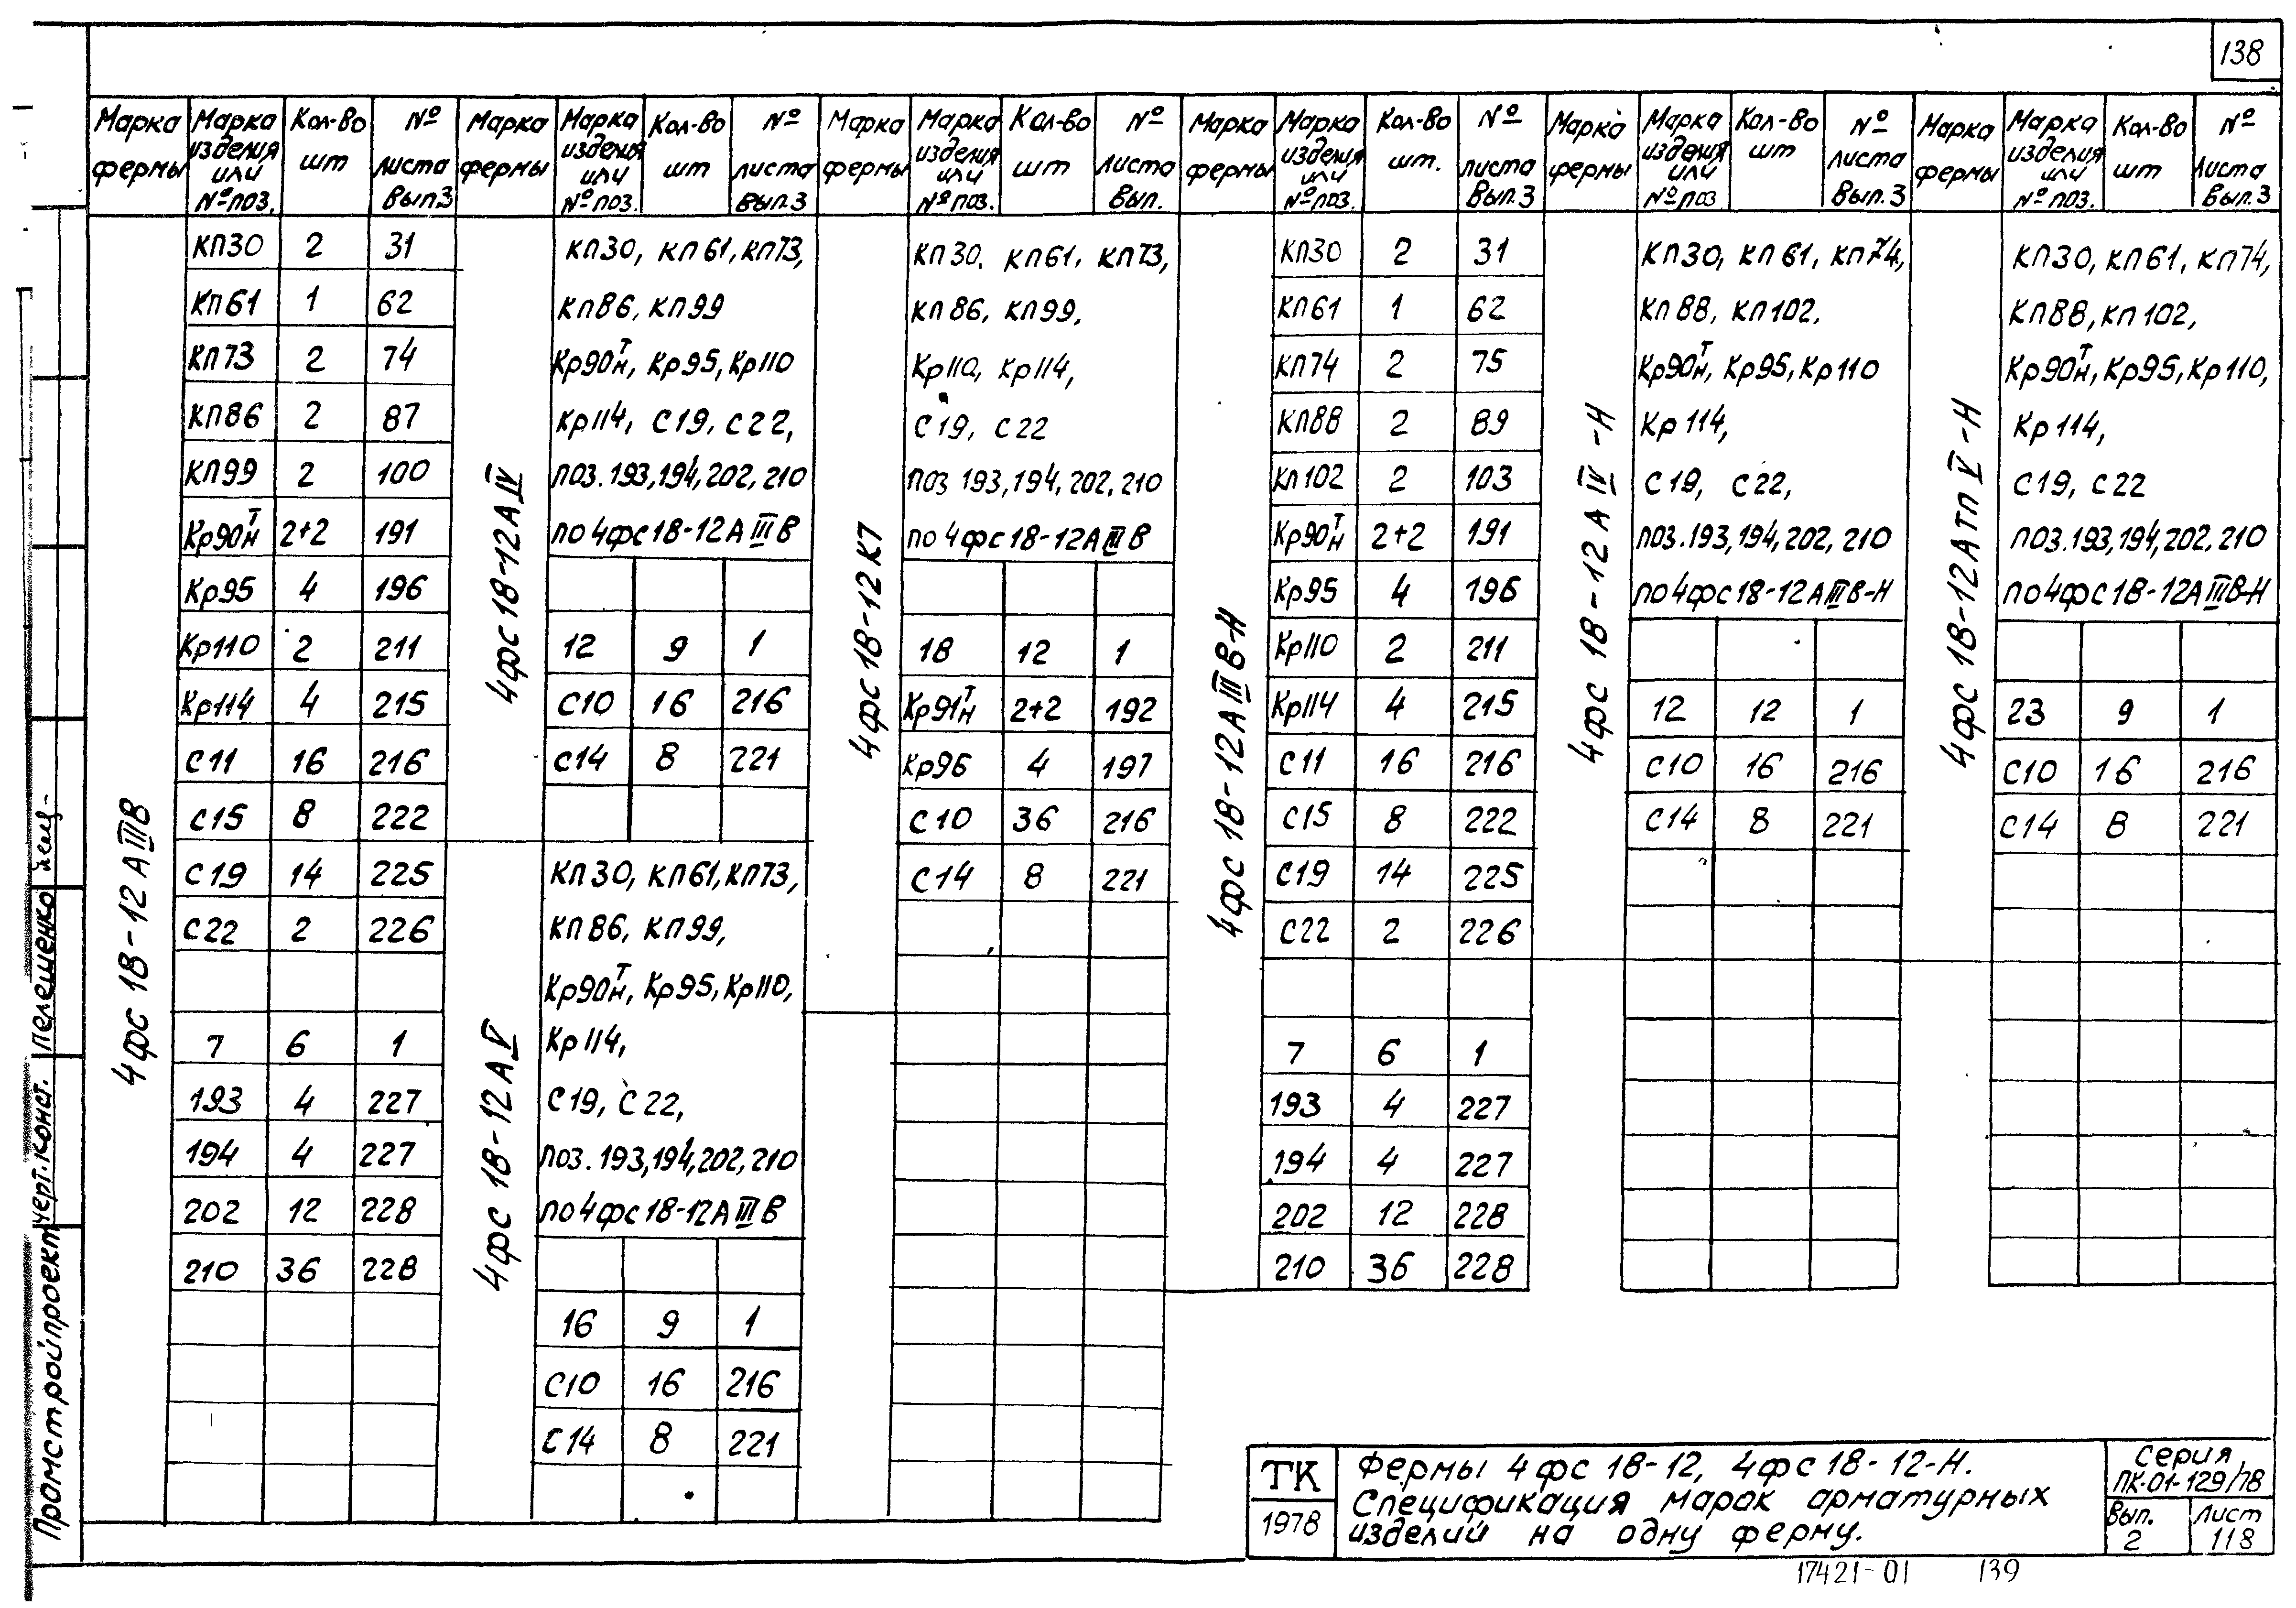 138
Марка фермы | Марка изделия или № поз. | Кол-во шт | № листа Вып.3
4фс 18-12 АIIIВ
КП30 2 31
КП61 1 62
КП73 2 74
КП86 2 87
КП99 2 100
Кр90тн 2+2 191
Кр95 4 196
Кр110 2 211
Кр114 4 215
С11 16 216
С15 8 222
С19 14 225
С22 2 226
7 6 1
193 4 227
194 4 227
202 12 228
210 36 228
Марка фермы | Марка изделия или № поз. | Кол-во шт | № листа Вып.3
4фс 18-12АIV
КП30, КП61, КП73,
КП86, КП99
Кр90тн, Кр95, Кр110
Кр114, С19, С22,
поз.193,194,202,210
по 4фс18-12АIIIВ
12 9 1
С10 16 216
С14 8 221
4фс 18-12АV
КП30, КП61, КП73,
КП86, КП99,
Кр90тн, Кр95, Кр110,
Кр114,
С19, С22,
поз.193,194,202,210
по 4фс18-12АIIIВ
16 9 1
С10 16 216
С14 8 221
Марка фермы | Марка изделия или № поз. | Кол-во шт | № листа Вып.
4фс 18-12К7
КП30. КП61, КП73,
КП86, КП99,
Кр110, Кр114,
С19, С22
поз 193,194,202,210
по 4фс18-12АIIIВ
18 12 1
Кр91тн 2+2 192
Кр96 4 197
С10 36 216
С14 8 221
Марка фермы | Марка изделия или № поз. | Кол-во шт. | № листа Вып.3
4фс 18-12АIIIВ-Н
КП30 2 31
КП61 1 62
КП74 2 75
КП88 2 89
КП102 2 103
Кр90тн 2+2 191
Кр95 4 196
Кр110 2 211
Кр114 4 215
С11 16 216
С15 8 222
С19 14 225
С22 2 226
7 6 1
193 4 227
194 4 227
202 12 228
210 36 228
Марка фермы | Марка изделия или № поз | Кол-во шт | № листа Вып.3
4фс 18-12 АIV-Н
КП30, КП61, КП74,
КП88, КП102,
Кр90тн, Кр95, Кр110
Кр114,
С19, С22,
поз.193,194,202,210
по 4фс18-12АIIIВ-Н
12 12 1
С10 16 216
С14 8 221
Марка фермы | Марка изделия или № поз. | Кол-во шт | № листа Вып.3
4фс 18-12Атп V-Н
КП30, КП61, КП74,
КП88, КП102,
Кр90тн, Кр95, Кр110,
Кр114,
С19, С22
поз.193,194,202,210
по 4фс18-12АIIIВ-Н
23 9 1
С10 16 216
С14 8 221
Промстройпроект
черт. конст. Пелешенко
ТК
1978
Фермы 4фс 18-12, 4фс18-12-Н.
Спецификация марок арматурных
изделий на одну ферму.
серия
ПК-01-129/78
Вып. 2
Лист 118
17421-01 139